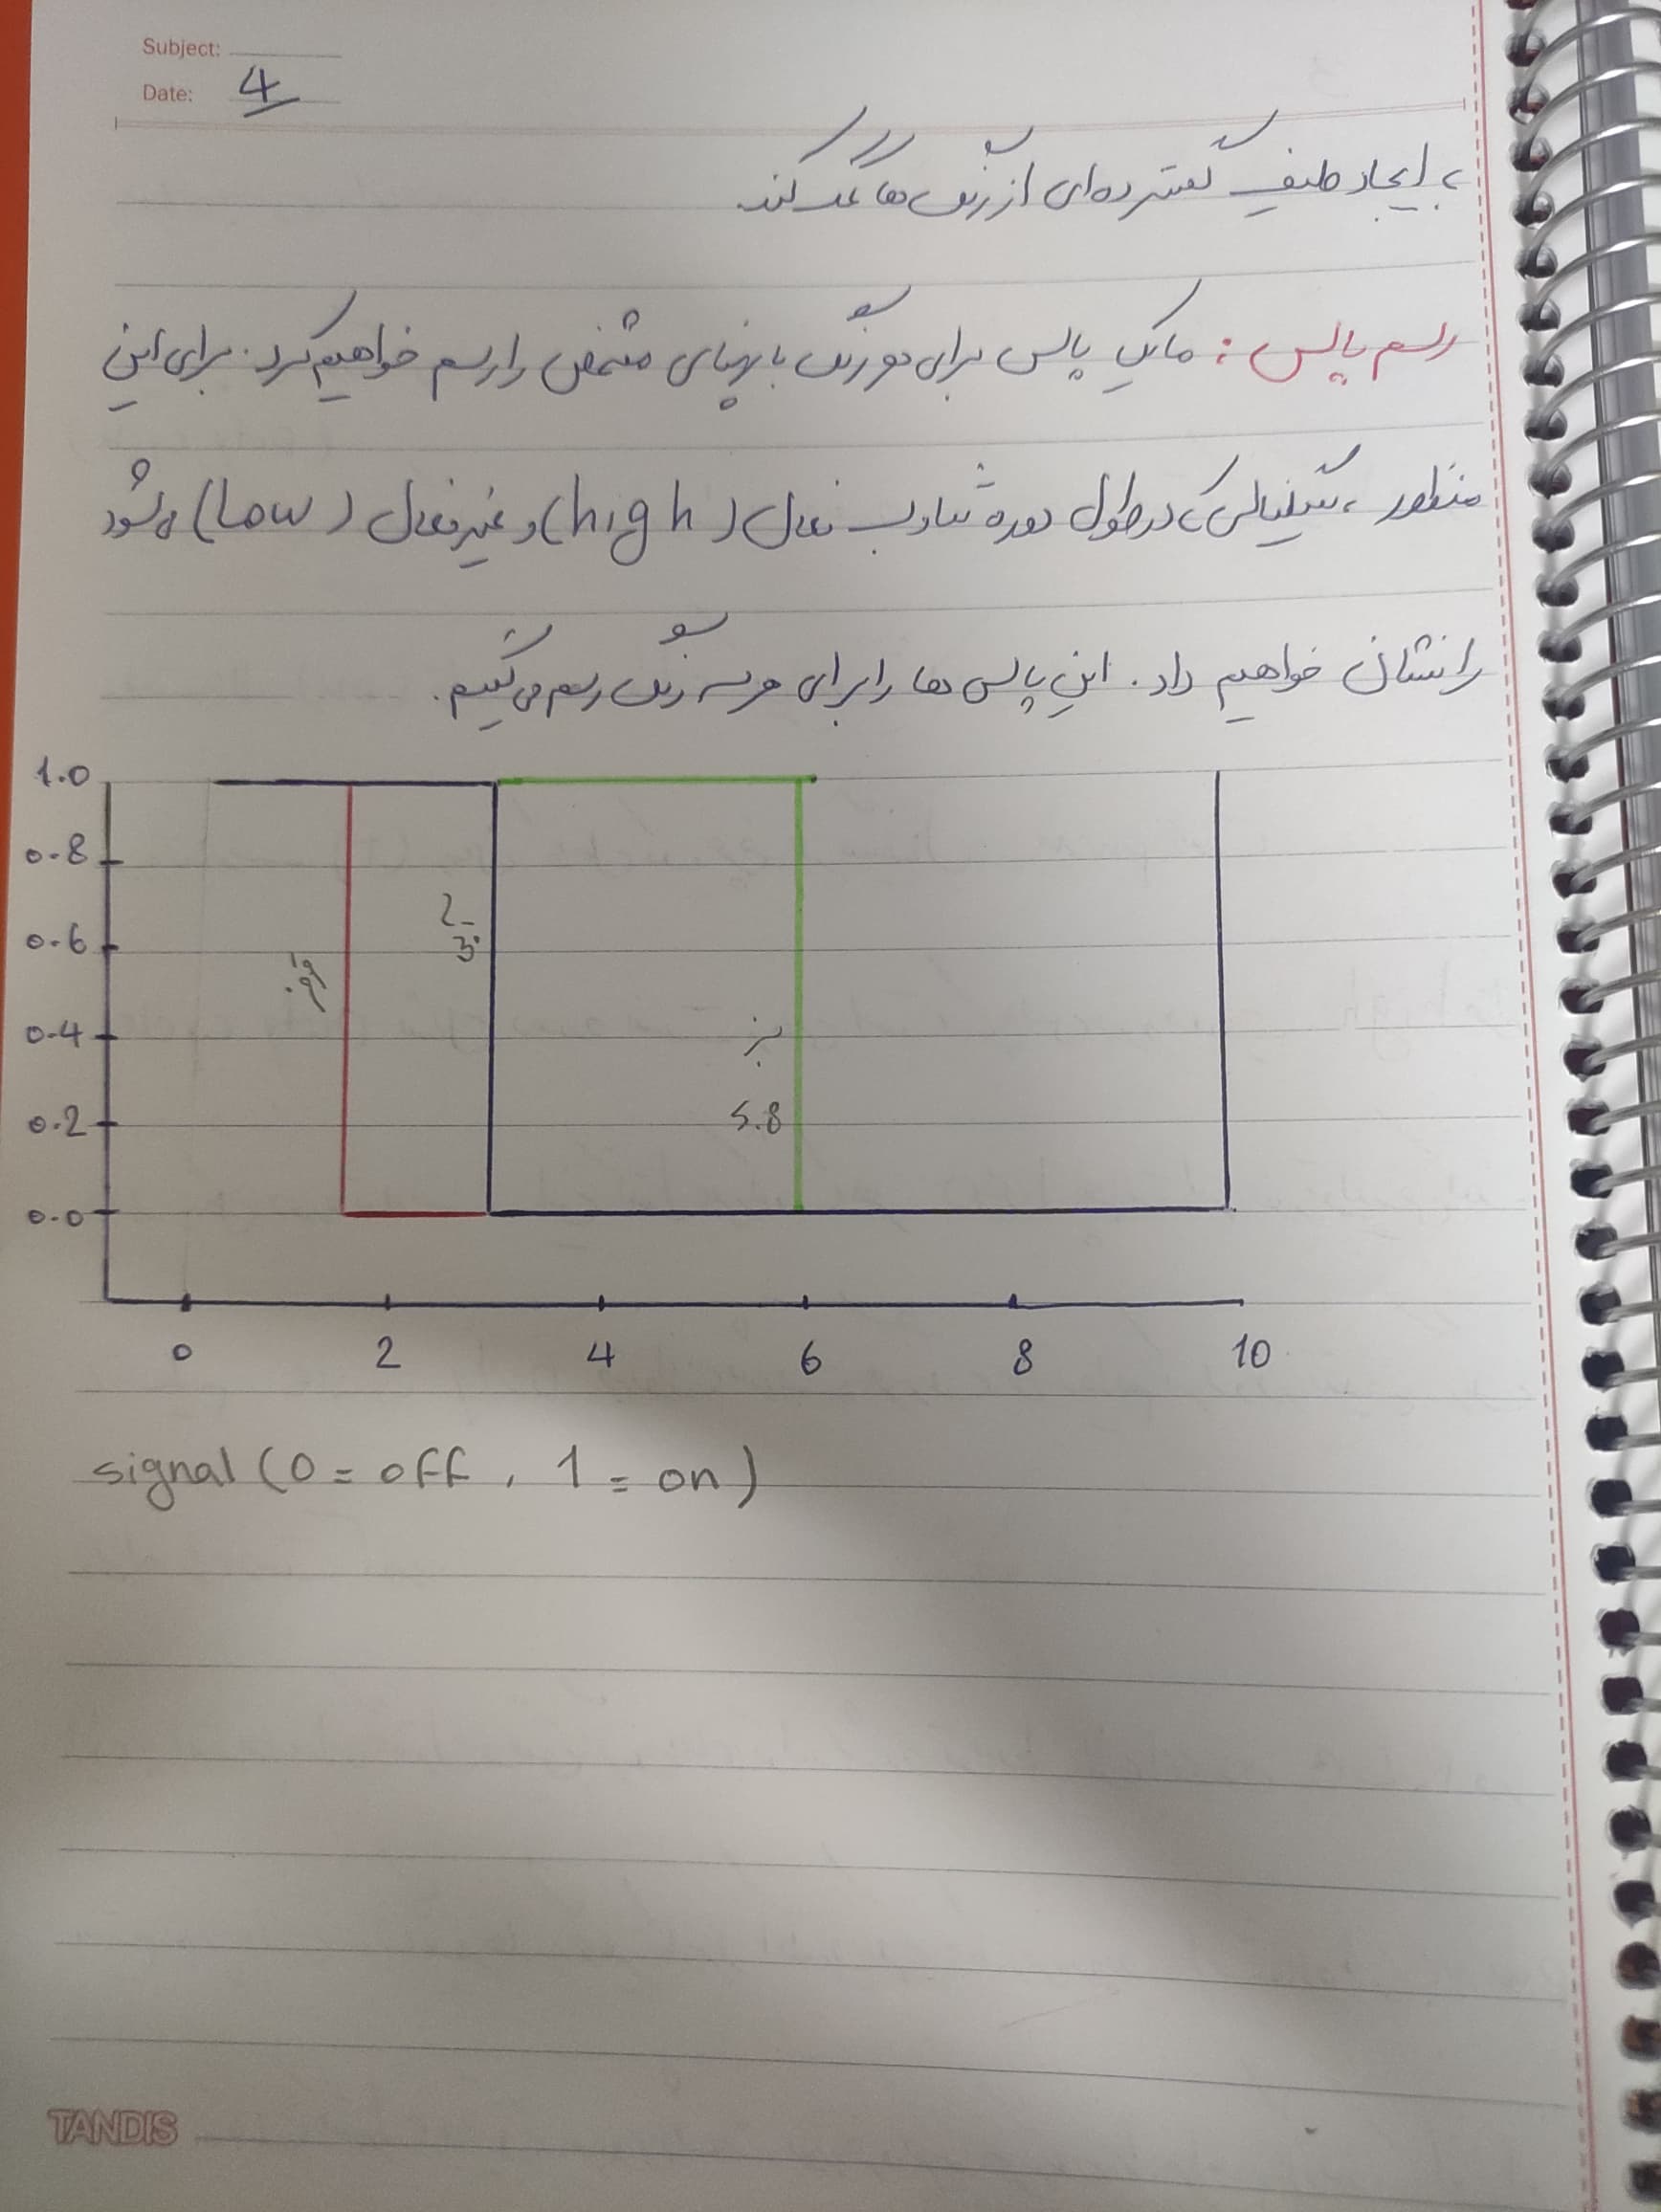 Subject:
Date: 4
به ایجاد طیف گسترده‌ای از رنگ ها کمک کند.
رسم پالس : ما یک پالس برای دو رنگ با پهنای مشخص را رسم خواهیم کرد. برای این
منظور، سیگنالی که در طول دوره تناوب فعال (high) و غیر فعال (Low) می‌شود
را نشان خواهیم داد. این پالس ها را برای هر سه رنگ رسم می کنیم.
1.0
0.8
0.6
0.4
0.2
0.0
قرمز
آبی
سبز
5.8
0 2 4 6 8 10
signal (0 = off , 1 = on)
TANDIS